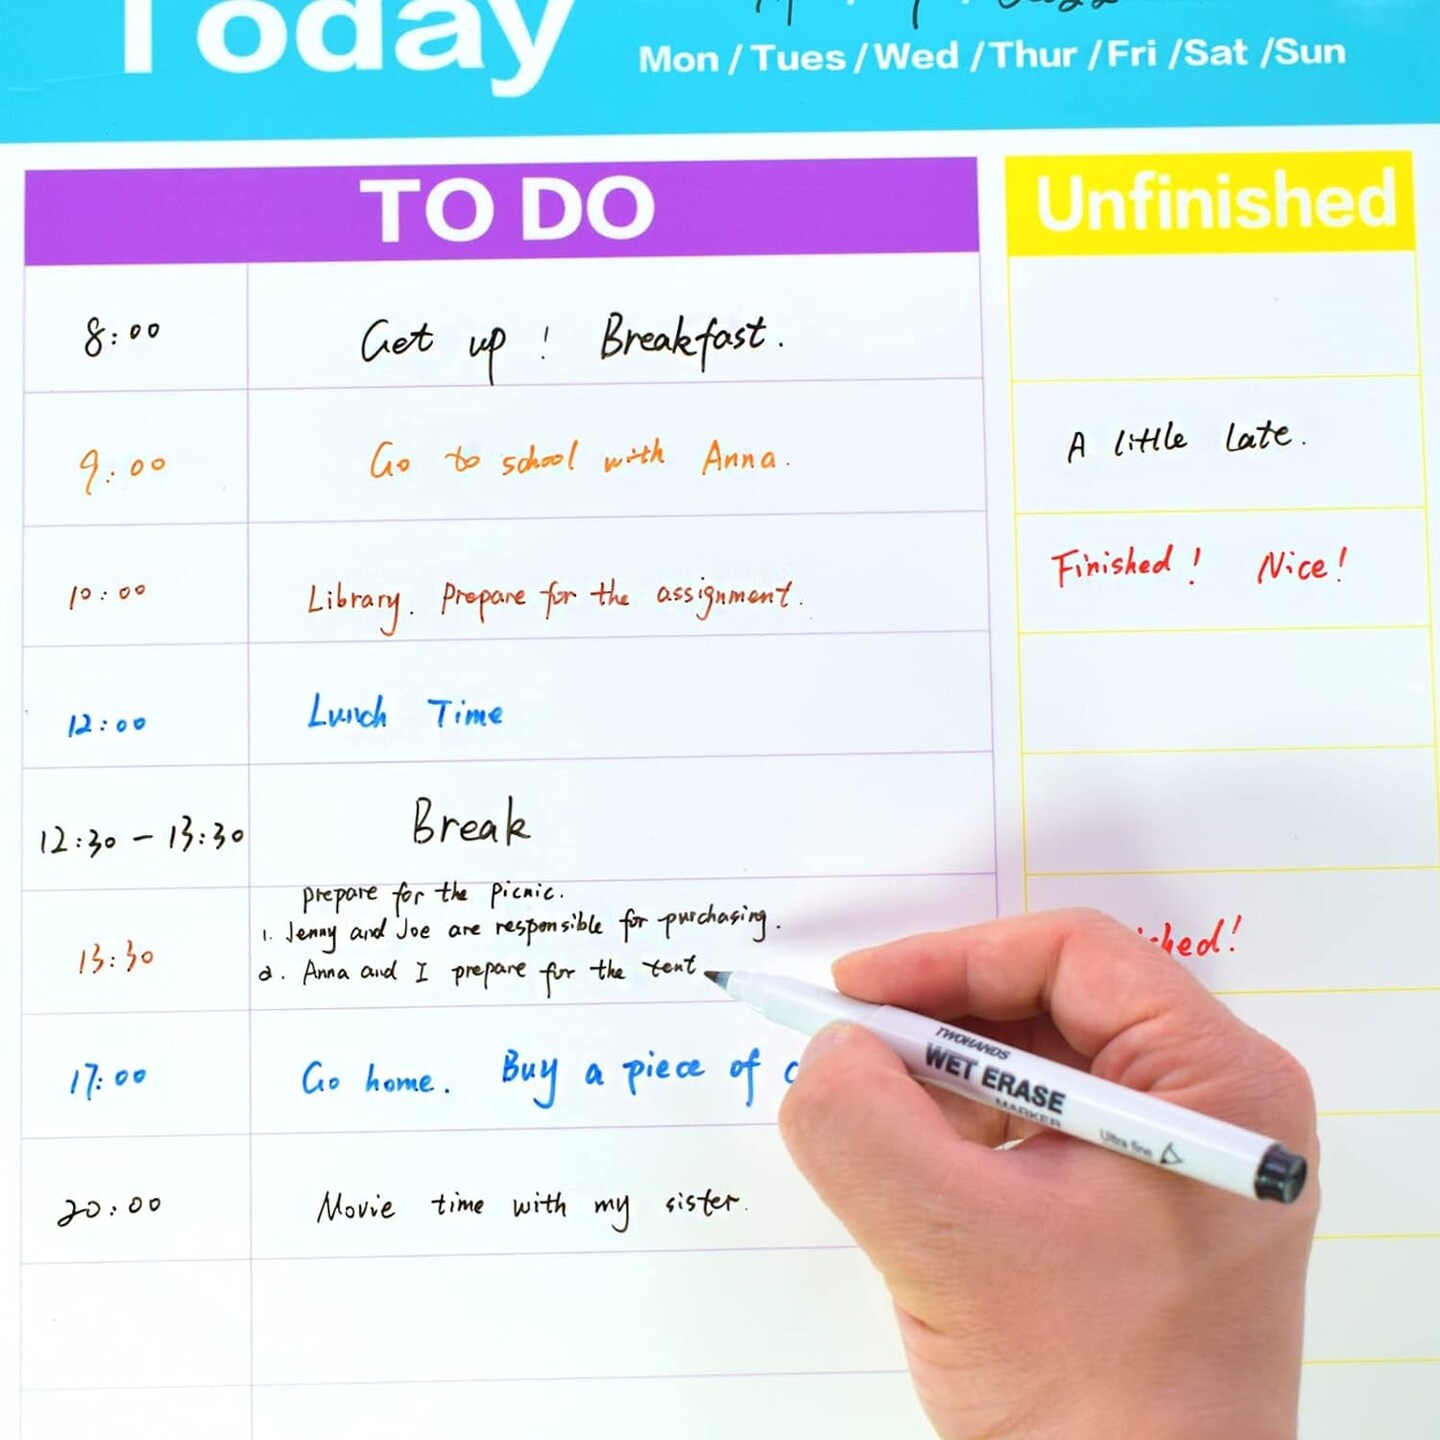 Today
Mon / Tues / Wed / Thur / Fri / Sat / Sun
TO DO
Unfinished
8:00 Get up! Breakfast.
9:00 Go to school with Anna. A little late.
10:00 Library. Prepare for the assignment. Finished! Nice!
12:00 Lunch Time
12:30 - 13:30 Break
prepare for the picnic.
1. Jenny and Joe are responsible for purchasing.
13:30
2. Anna and I prepare for the tent
17:00 Go home. Buy a piece of
20:00 Movie time with my sister.
TWOHANDS
WET ERASE
MARKER
Ultra fine